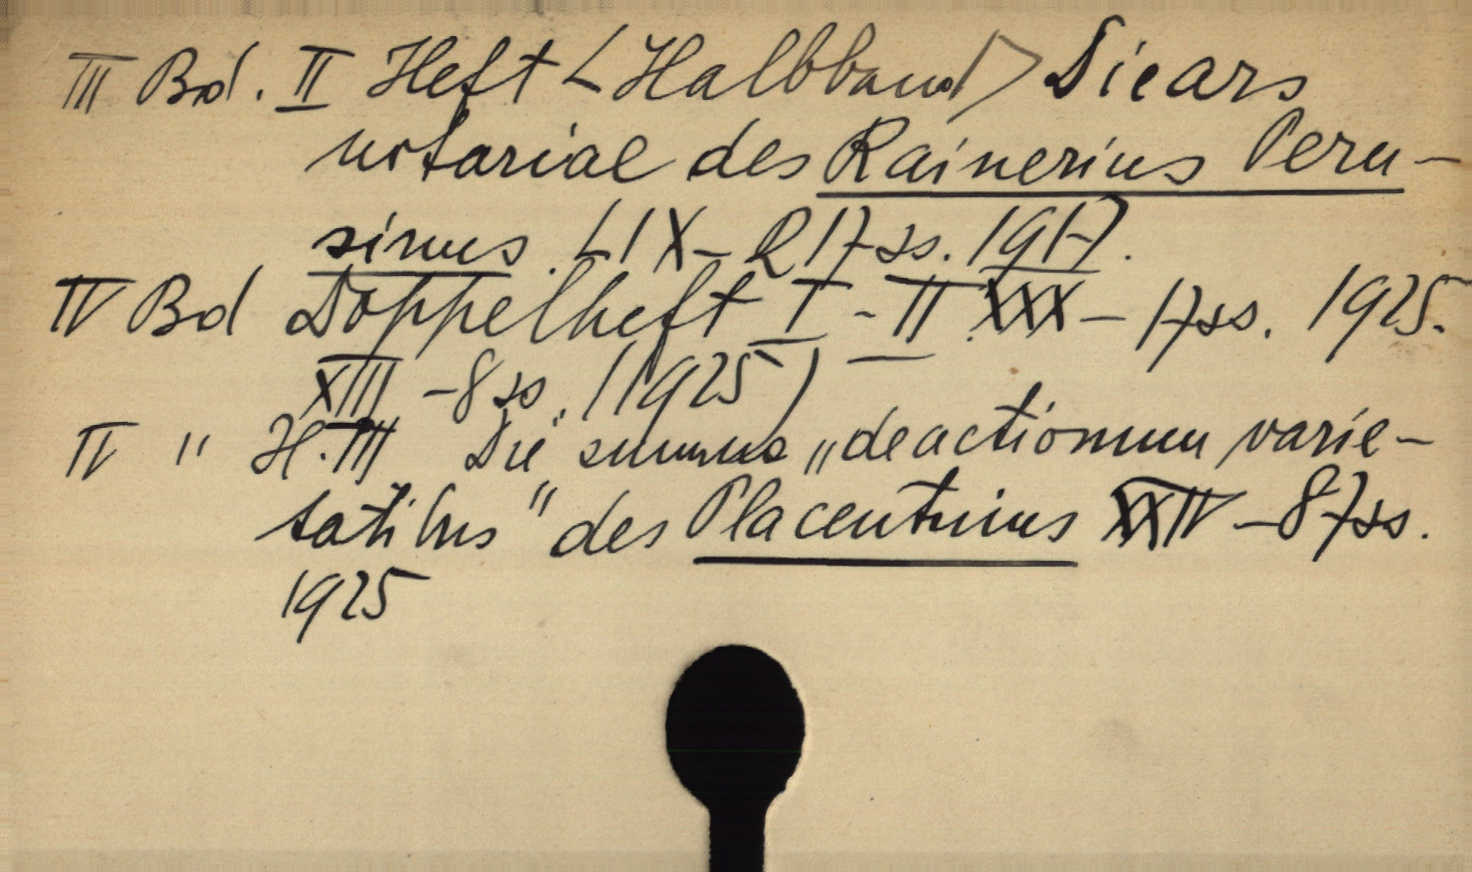 III Bd. II Heft <Halbband> Die ars
notariae des Rainerius Peru-
sinus. LIX - 217 ss. 1917.
IV Bd Doppelheft I - II XXX - 17 ss. 1925.
XIII - 8 ss. (1925)
IV " H. III Die summa „de actionum varie-
tatibus" des Placentinus XXIV - 87 ss.
1925